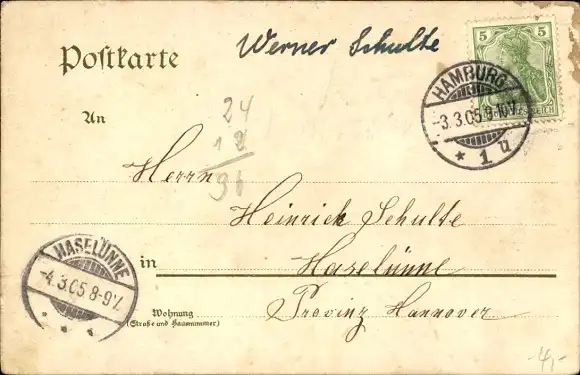 Postkarte
Werner Schulte
5 5
HAMBURG
-3.3.05.8-10V.
* 1 ü
An
24
12
36
Herrn
Heinrich Schulte
in Haselünne
Wohnung
(Straße und Hausnummer)
Provinz Hannover
HASELÜNNE
-4.3.05 8-9V.
* * *
-4,-